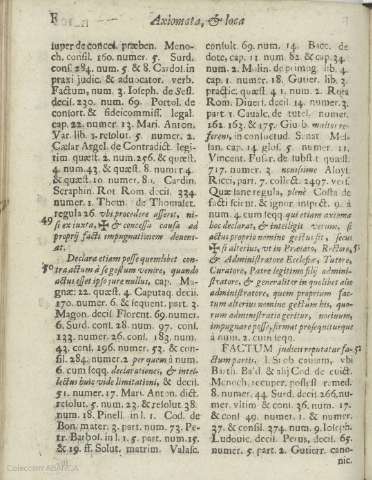 F
Axiomata, & loca
super de concess. præben. Meno-
ch. consil. 160. numer. 5. Surd.
cons. 284. num. 5. & 8. Cardos. in
praxi judic. & advocator. verb.
Factum, num. 3. Ioseph. de Sess.
decis. 230. num. 69. Portol. de
consort. & fideicommiss. legal.
cap. 22. numer. 13. Mari. Anton.
Var. lib. 3. resolut. 5. numer. 2.
Cæsar Argel. de Contradict. legi-
tim. quæst. 2. num. 256. & quæst.
4. num. 43. & quæst. 8. num. 14.
& quæst. 10. numer. 81. Cardin.
Seraphin. Rot. Rom. decis. 324
numer. 1. Thom. de Thomaset.
regula 26. vbi procedere asserit, ni-
49 si ex iuxta, ✠ & concessa causa ad
proprij facti impugnationem deueni-
at.
Declara etiam posse quemlibet con-
50 tra actum à se gestum venire, quando
actus esset ipso iure nullus, cap. Ma-
gnæ: 22. quæst. 4. Caputaq. decis.
170. numer. 6. & sequent. part. 3.
Magon. decis. Florent. 69. numer.
6. Surd. cons. 28. num. 97. cons.
133. numer. 26. cons. 183. num.
43. cons. 196. numer. 53. & con-
sil. 284. numer. 2. per quatuor num.
6. cum seqq. declarationes, & intel-
lectum huic vide limitationi, & decis.
51. numer. 17. Mari. Anton. dict.
resolut. 5. num. 23. & resolut. 38.
num. 18. Pinell. in l. 1. Cod. de
Bon. mater. 3. part. num. 73. Pe-
tr. Barbos. in l. 1. 5. part. num. 15.
& 19. ff. Solut. matrim. Valasc.
consult. 69. num. 14. Baec. de
dote, cap. 11. num. 62. & cap. 34.
num. 2. Molin. de primog. lib. 4.
cap. 1. numer. 18. Gutier. lib. 3.
practic. quæst. 41. num. 2. Rota
Rom. Diuers. decis. 14. numer. 3.
part. 1. Caualc. de tutel. numer.
162. 163. & 175. Giurb. multos re-
ferens, in consuetud. Senat. Mes-
san. cap. 14. glos. 5. numer. 11.
Vincent. Fusar. de substit. quæst.
717. numer. 3. nouissime Aloys.
Ricci, part. 7. collect. 2497. vers.
Quæ sane regula, plene Costa de
facti scient. & ignor. inspect. 9. à
num. 4. cum seqq. qui etiam axioma
hoc declarat, & intelligit verum, si
actus proprio nomine gestus sit, secus
✠ si alterius, vt in Prælato, Rectore, 51
& Administratore Ecclesiæ, Tutore,
Curatore, Patre legitimo filij admini-
stratore, & generaliter in quolibet alio
administratore, quem proprium fac-
tum alterius nomine gestum his, quo-
rum administratio geritur, nocivum,
impugnare posse, firmat prosequiturque
à num. 2. cum seqq.
FACTUM judicis reputatur fa- 52
ctum partis, l. Si ob causam, vbi
Barth. Bald. & alij Cod. de euict.
Menoch. recuper. possess. remed.
8. numer. 44. Surd. decis. 266. nu-
mer. vltim. & cons. 36. num. 17.
& cons. 49. numer. 1. & numer.
37. & consil. 374. num. 9. Ioseph.
Ludouic. decis. Perus. decis. 65.
numer. 5. part. 2. Gutierr. cano-
nic.